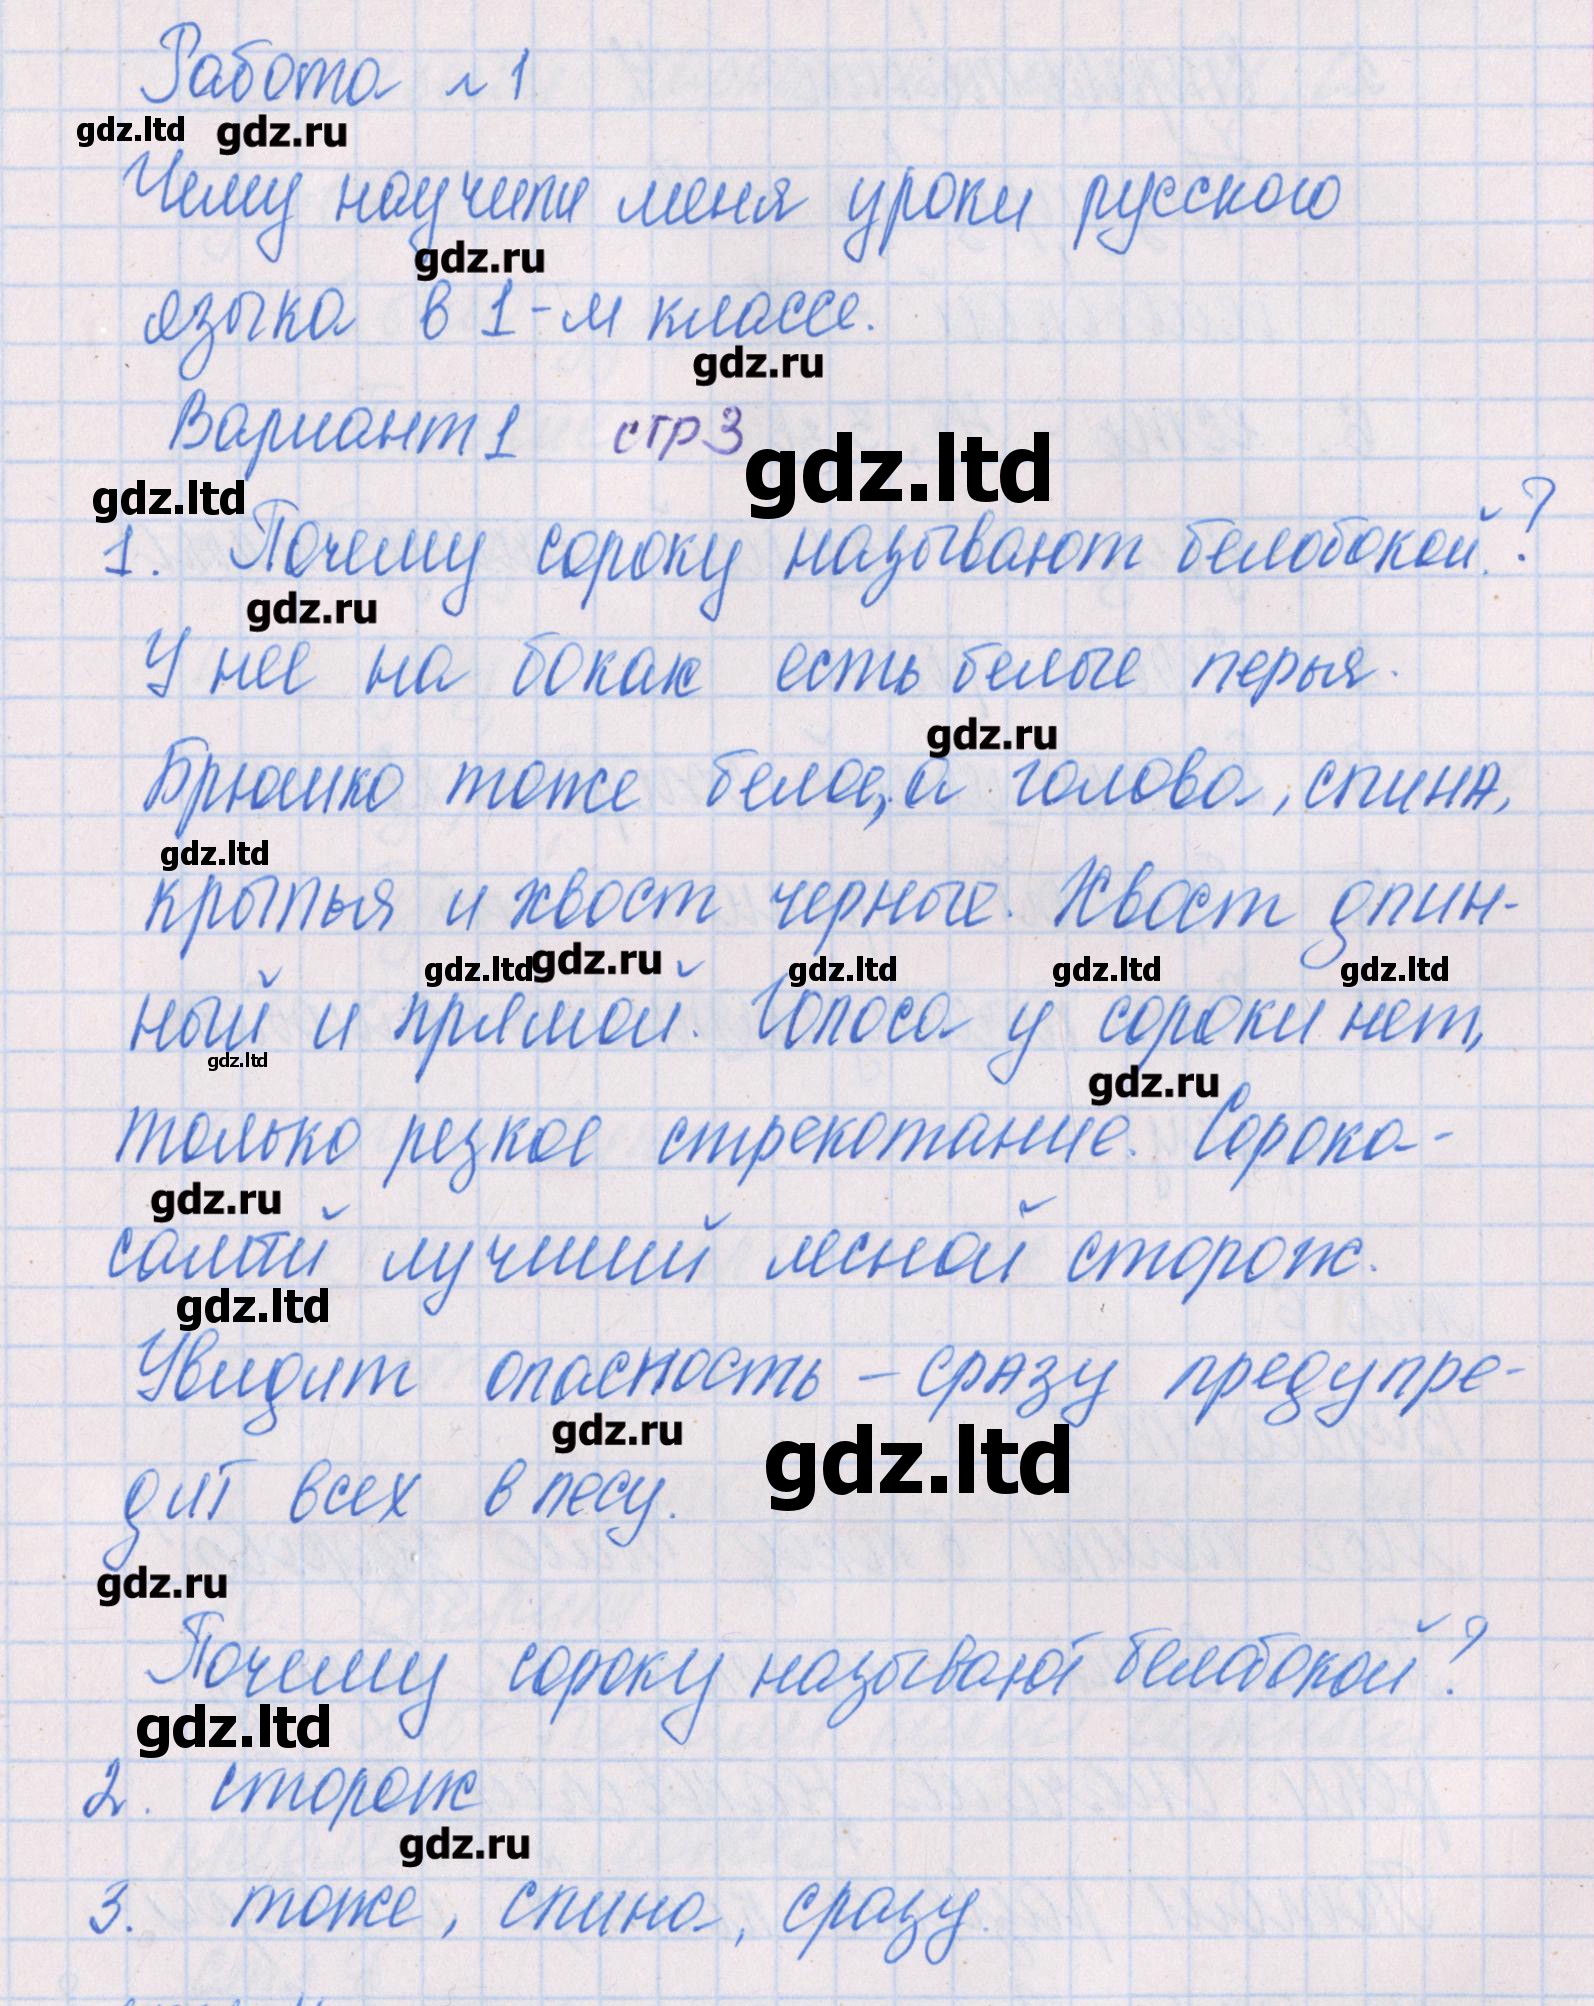 Работа № 1
gdz.ltd gdz.ru
Чему научили меня уроки русского
gdz.ru
языка в 1-м классе.
gdz.ru
Вариант 1 стр 3
gdz.ltd
gdz.ltd
1. Почему сороку называют белобокой?
gdz.ru
У нее на боках есть белые перья.
gdz.ru
Брюшко тоже белое, а голова, спина,
gdz.ltd
крылья и хвост черные. Хвост длин-
gdz.ltd gdz.ru gdz.ltd gdz.ltd gdz.ltd
ный и прямой. Голоса у сороки нет,
gdz.ltd
gdz.ru
только резкое стрекотание. Сорока-
gdz.ru
самый лучший лесной сторож.
gdz.ltd
Увидит опасность – сразу предупре-
gdz.ru
gdz.ltd
дит всех в лесу.
gdz.ru
Почему сороку называют белобокой?
gdz.ltd
2. сторож
gdz.ru
3. тоже, спина, сразу.